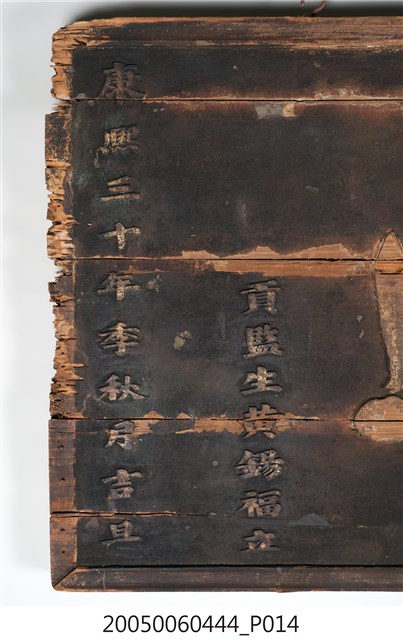 貢監生黃錫福立
康熙三十年季秋月吉旦
20050060444_P014